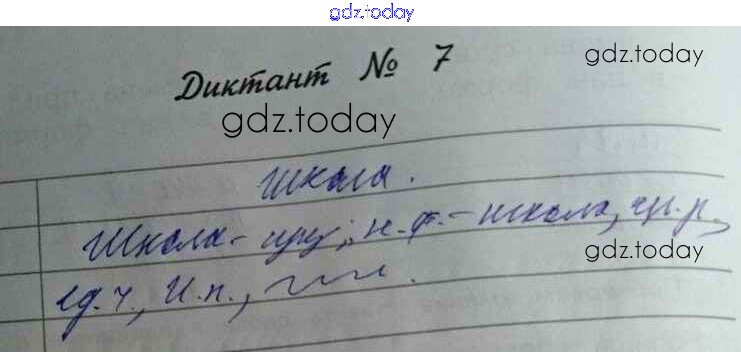 gdz.today
gdz.today
Диктант № 7
gdz.today
Школа.
Школа - сущ., н.ф. - школа, ж.р.,
gdz.today
ед.ч., И.п.,